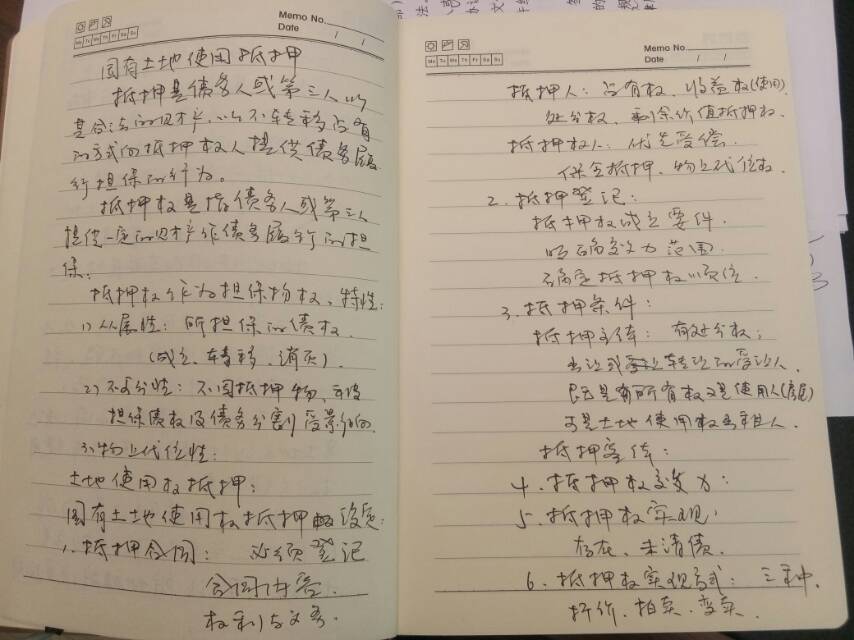 Memo No.
Mo Tu We Th Fr Sa Su
Date / /
国有土地使用抵押
抵押是债务人或第三人以
其合法的财产,以不转移占有
的方式向抵押权人提供债务履
行担保的行为。
抵押权是指债务人或第三人
提供一定的财产作债务履行的担
保。
抵押权作为担保物权,特性:
1) 从属性:所担保的债权.
(成立、转移、消灭).
2) 不可分性:不因抵押物、
担保债权及债务分割受影响.
3) 物上代位性:
土地使用权抵押:
国有土地使用权抵押 设定:
1. 抵押合同:必须登记
合同内容.
权利与义务.
Memo No.
Mo Tu We Th Fr Sa Su
Date / /
抵押人:占有权、收益权(使用)
处分权、剩余价值抵押权.
抵押权人:优先受偿.
保全抵押、物上代位权.
2. 抵押登记:
抵押权成立要件.
明确效力范围.
确定抵押权顺位.
3. 抵押条件:
抵押主体:有处分权;
出让或 转让的受让人.
既是有所有权又是使用人(房屋)
可是土地使用权出租人.
抵押客体:
4. 抵押权效力:
5. 抵押权实现:
存在、未清债.
6. 抵押权实现方式:三种.
折价、拍卖、变卖.